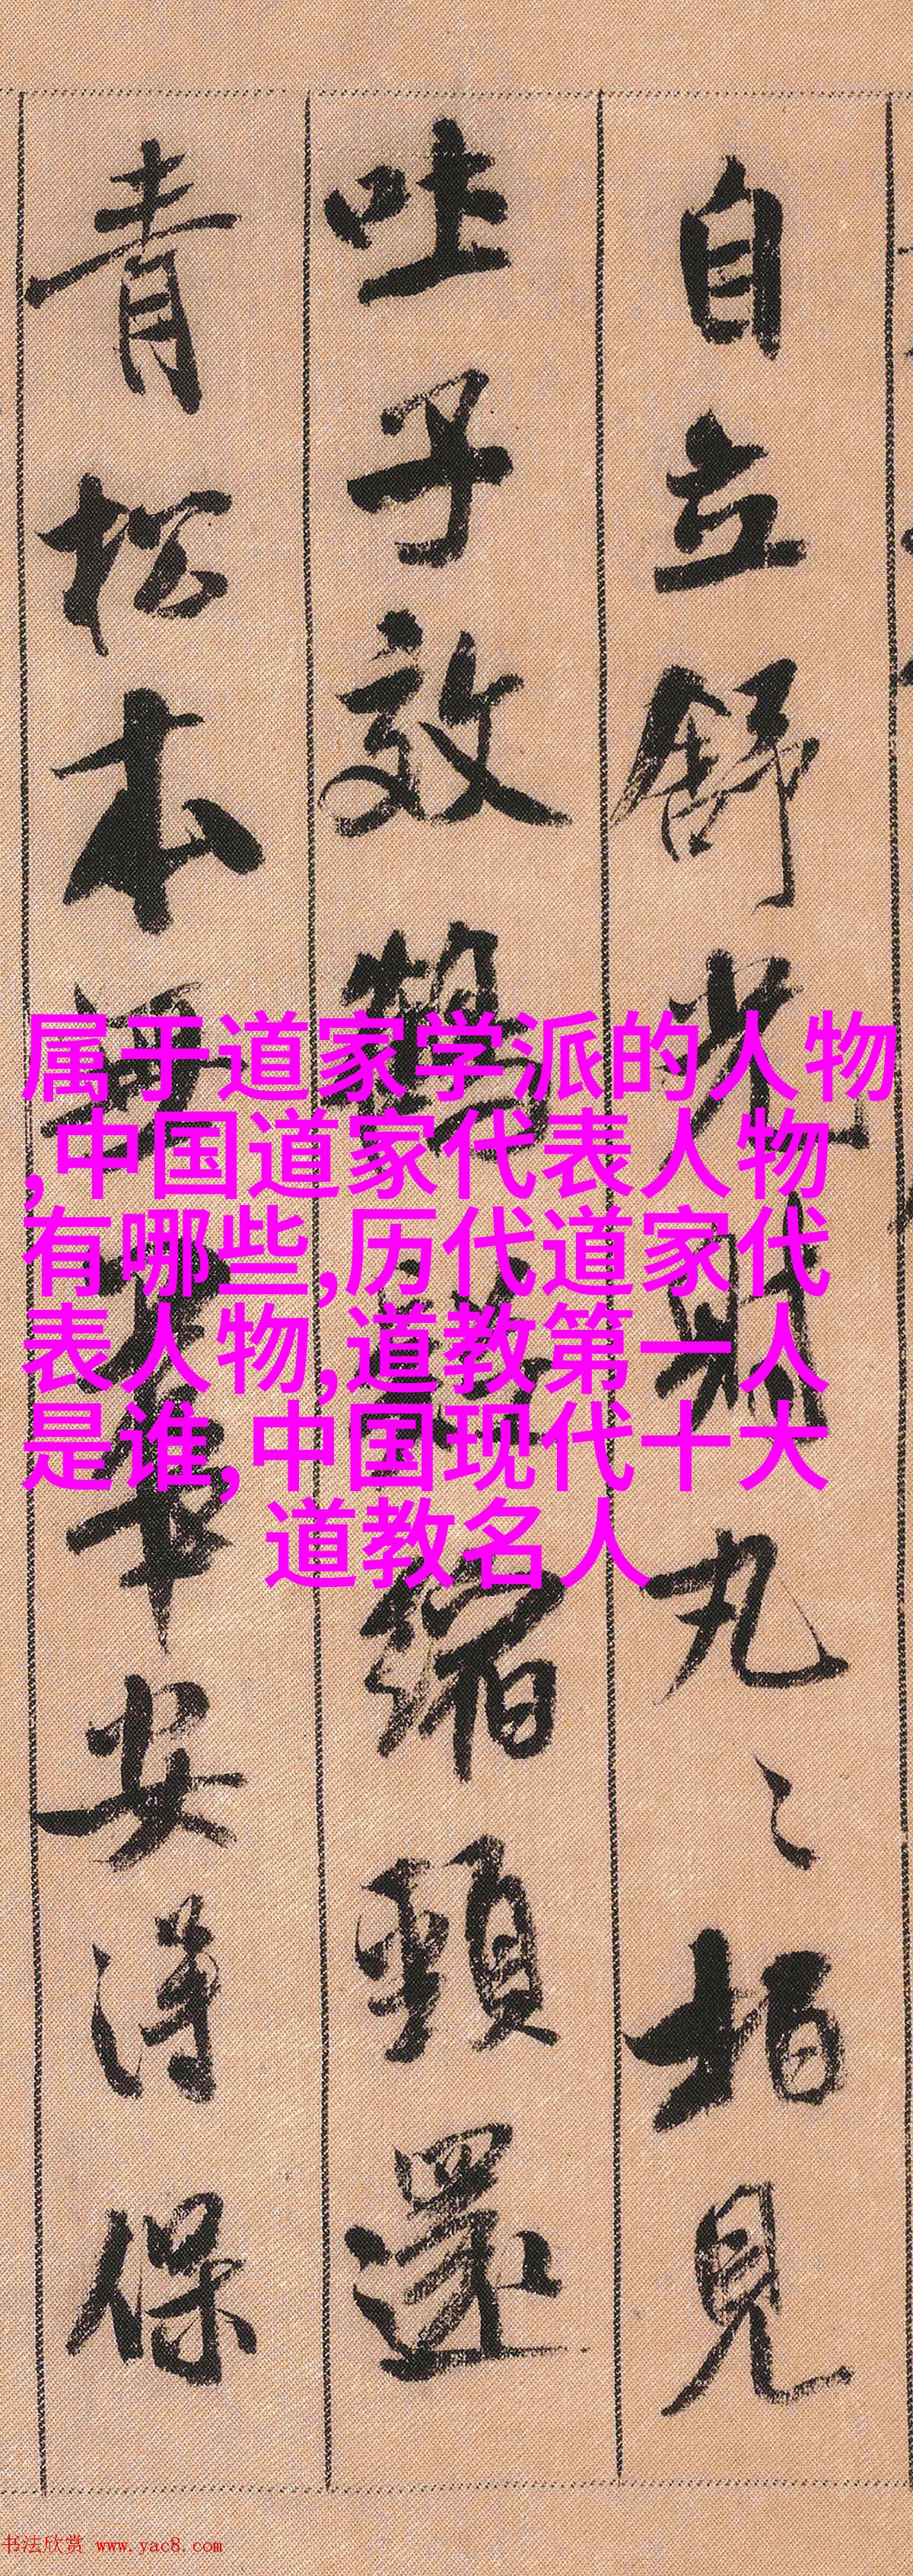 自立舒光射丸〻柏見
吐子效鶴疑縮頸還
青松本無華安得保
属于道家学派的人物
,中国道家代表人物
有哪些,历代道家代
表人物,道教第一人
是谁,中国现代十大
道教名人
书法欣赏 www.yac8.com